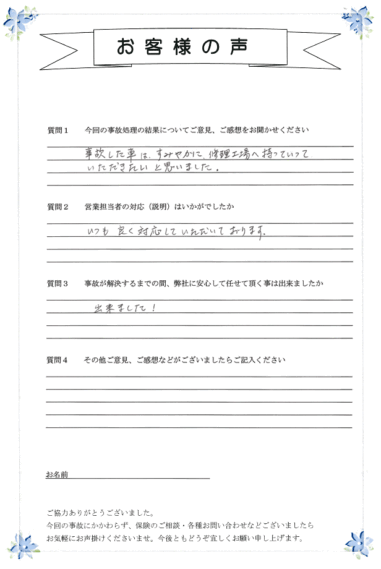 お客様の声
質問1 今回の事故処理の結果についてご意見、ご感想をお聞かせください
事故した車は、すみやかに、修理工場へ持っていって
いただきたいと思いました。
質問2 営業担当者の対応（説明）はいかがでしたか
いつも良く対応していただいております。
質問3 事故が解決するまでの間、弊社に安心して任せて頂く事は出来ましたか
出来ました！
質問4 その他ご意見、ご感想などがございましたらご記入ください
お名前
ご協力ありがとうございました。
今回の事故にかかわらず、保険のご相談・各種お問い合わせなどございましたら
お気軽にお声掛けくださいませ。今後ともどうぞ宜しくお願い申し上げます。